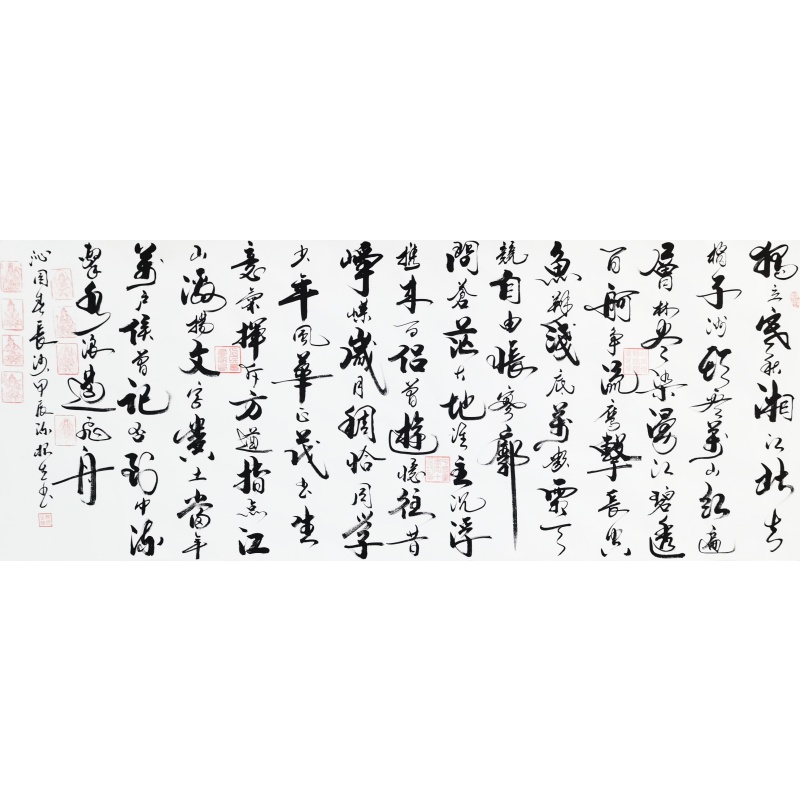 獨立寒秋湘江北去
橘子洲頭看萬山紅遍
層林盡染漫江碧透
百舸爭流鷹擊長空
魚翔淺底萬類霜天
競自由悵寥廓
問蒼茫大地誰主沉浮
攜來百侶曾遊憶往昔
崢嶸歲月稠恰同學
少年風華正茂書生
意氣揮斥方遒指點江
山激揚文字糞土當年
萬戶侯曾記否到中流
擊水浪遏飛舟
沁園春長沙甲辰書